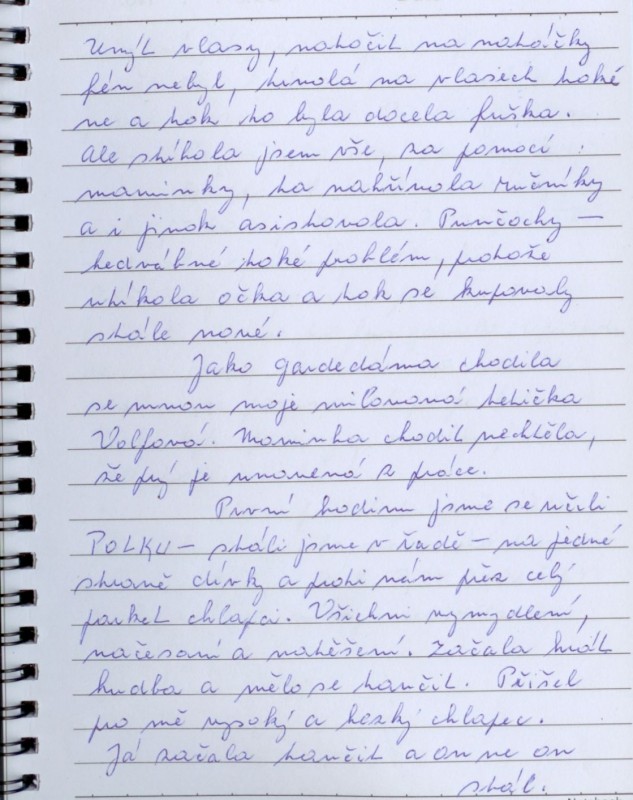 Umýt vlasy, natočit na natáčky
fén nebyl, trvalá na vlasech také
ne a tak to byla docela fuška.
Ale stíhala jsem vše, za pomoci
maminky, ta nahřívala ručníky
a i jinak asistovala. Punčochy –
hedvábné také problém, protože
utíkala očka a tak se kupovaly
stále nové.
Jako gardedáma chodila
se mnou moje milovaná tetička
Volfová. Maminka chodit nechtěla,
že prý je unavená z práce.
První hodinu jsme se učili
POLKU – stáli jsme v řadě – na jedné
straně dívky a proti nám přes celý
parket chlapci. Všichni vymydlení,
načesaní a natěšení. Začala hrát
hudba a mělo se tančit. Přišel
pro mě vysoký a hezký chlapec.
Já začala tančit a on ne on
stál.